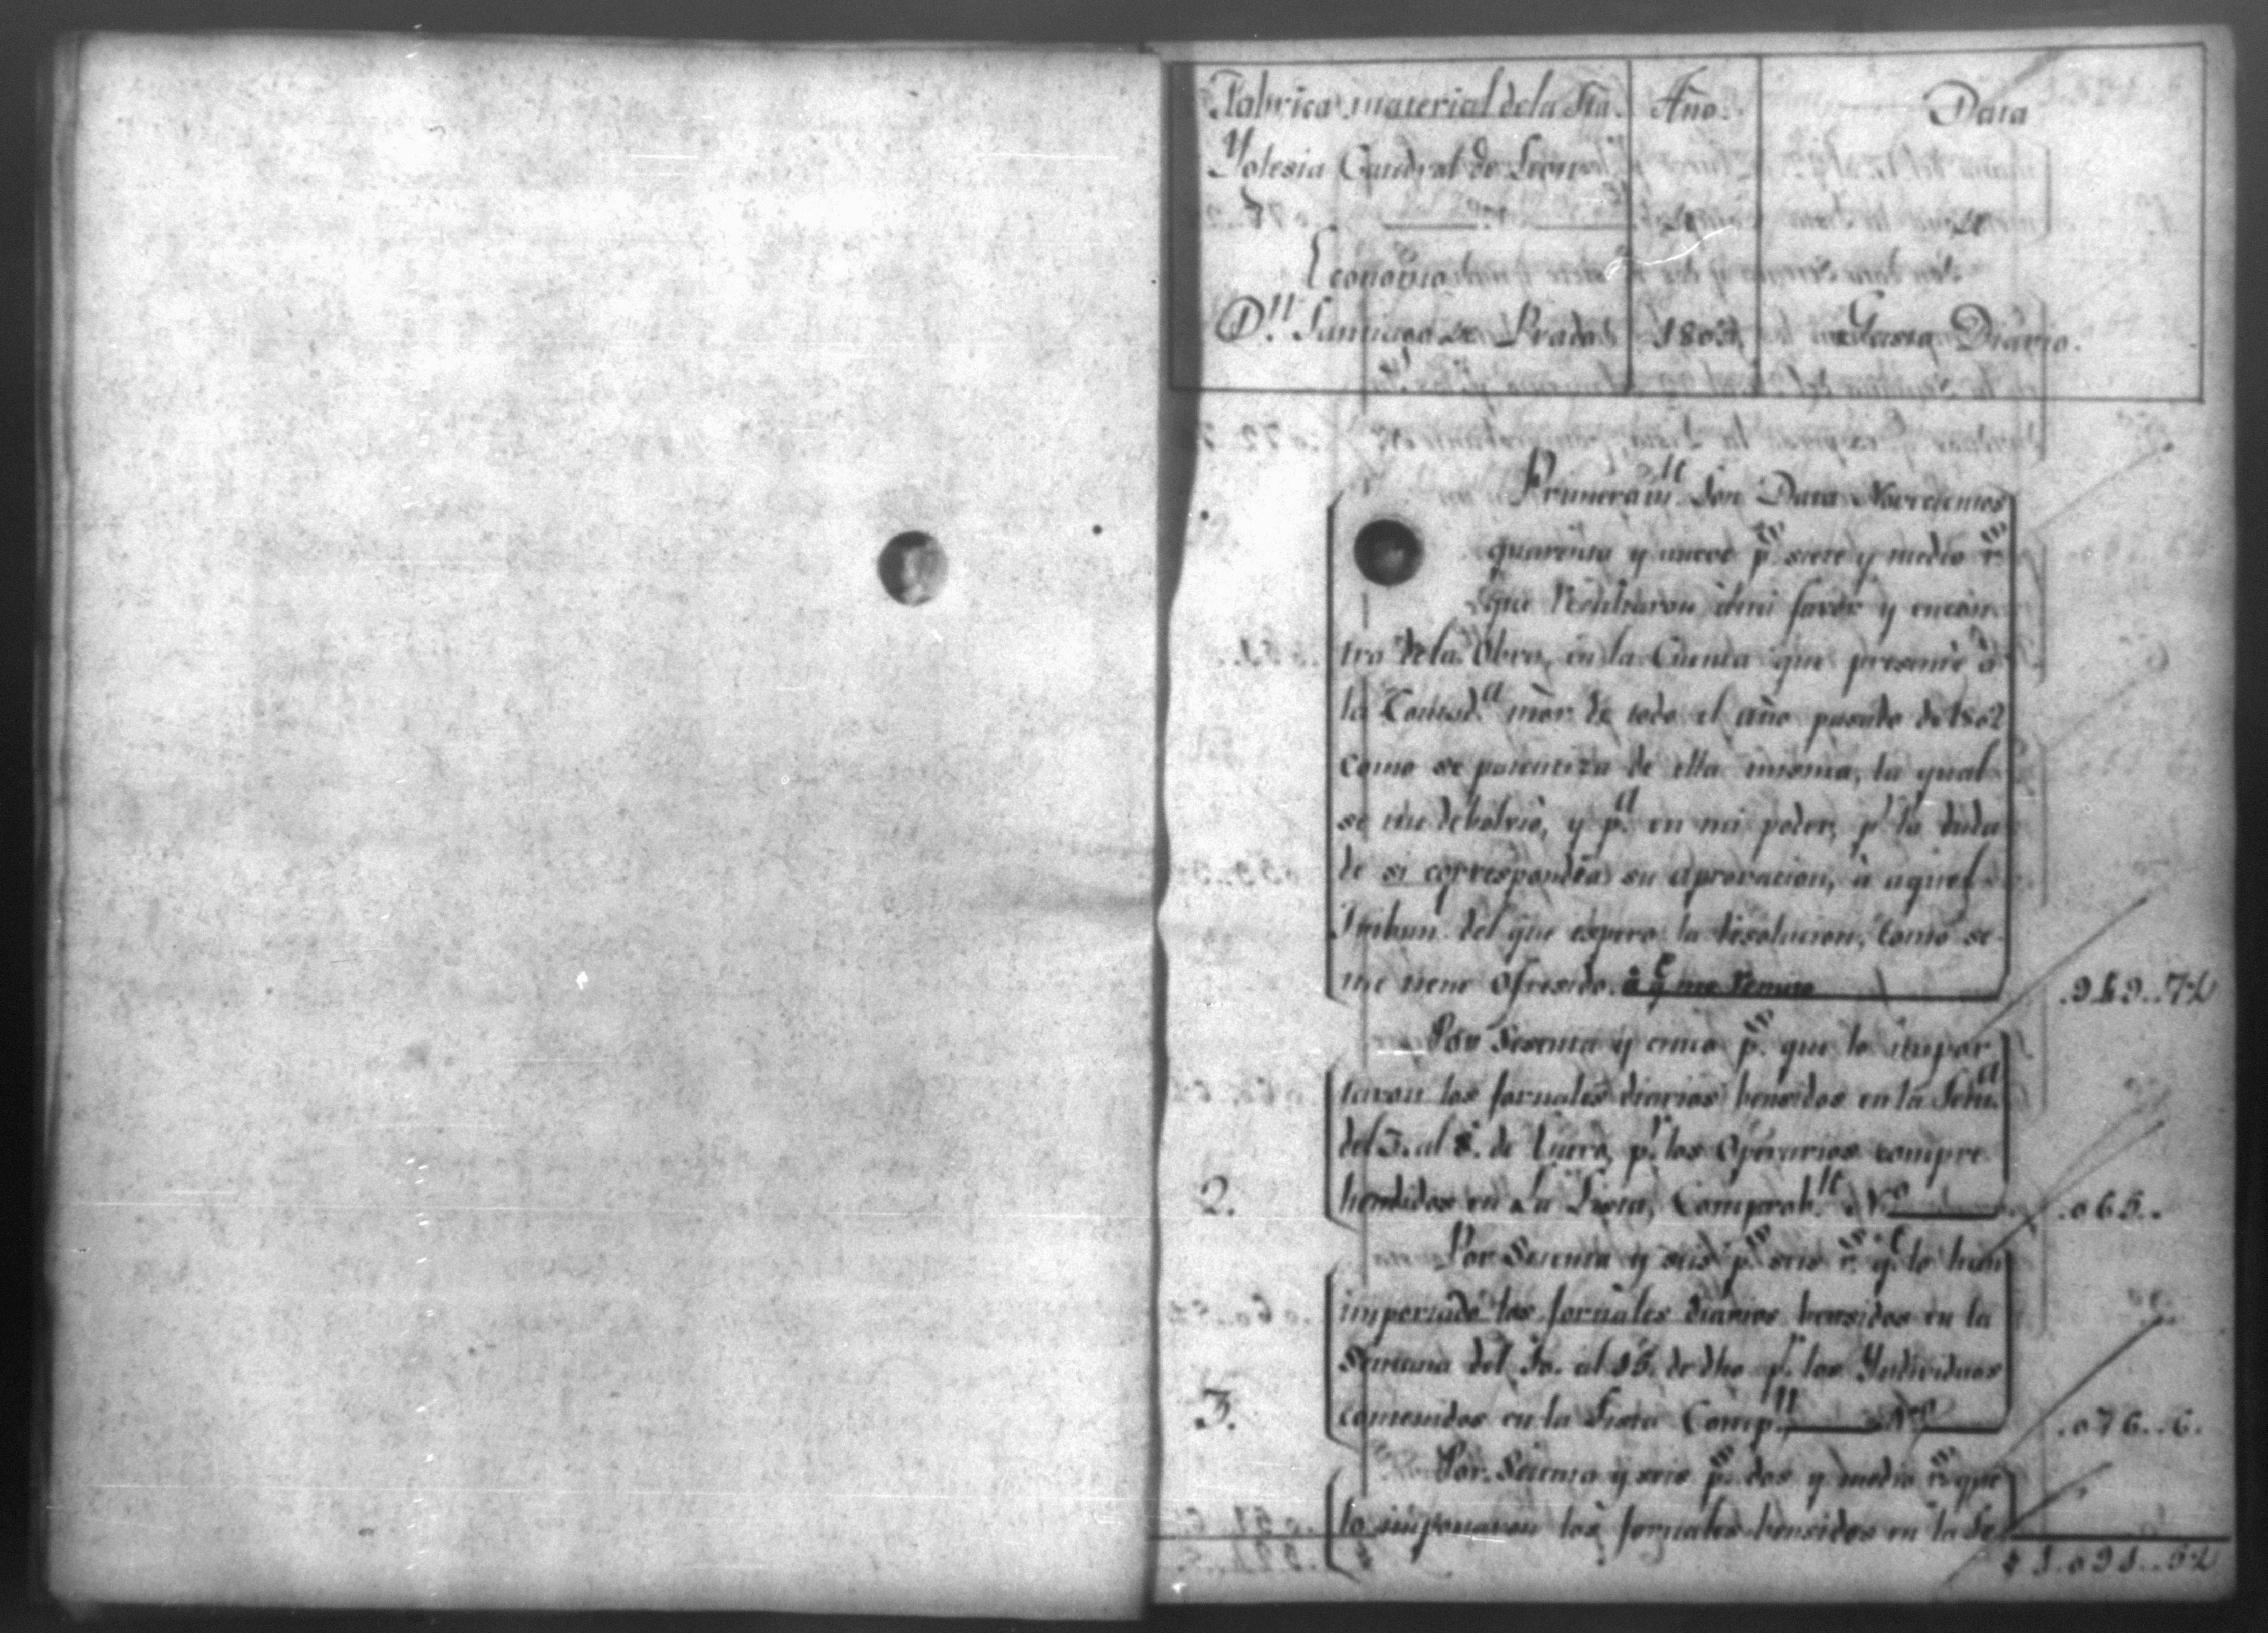 Fabrica material de la Sta. Año. Data
Yglesia Catedral de Leon
de
Economo
D.n Santiago de Prado 1803 Gasto Diario.
Primeram.te Son Data Novecientos
quarenta y nueve p.s siete y medio r.s
que resultaron á mi favor y encon
tra de la Obra, en la Cuenta que presenté à
la Contad.a mòr de todo el año pasado de 1802
como se patentiza de ella misma, la qual
se me debolvio, y p.a en mi poder, p.r la duda
de si correspondia su aprovacion, à aquel
Tribun.l del que espero la resolucion, como se
me tiene ofresido. à q.e me remito .949..7½
Por Sesenta y cinco p.s que lo impor
taron los jornales diarios bensidos en la Sem.a
del 3. al 8. de Enero, p.r los Operarios compre
2. hendidos en la Lista, Comprob.te N.o .065..
Por Setenta y seis p.s seis r.s q.e lo han
importado los jornales diarios bensidos en la
Semana del 10. al 15. de dho p.r los Yndividuos
3. contenidos en la Lista Comp.te N.o .076..6.
Por Setenta y seis p.s dos y medio r.s que
lo importaron los jornales bensidos en la Se
1.091..5½